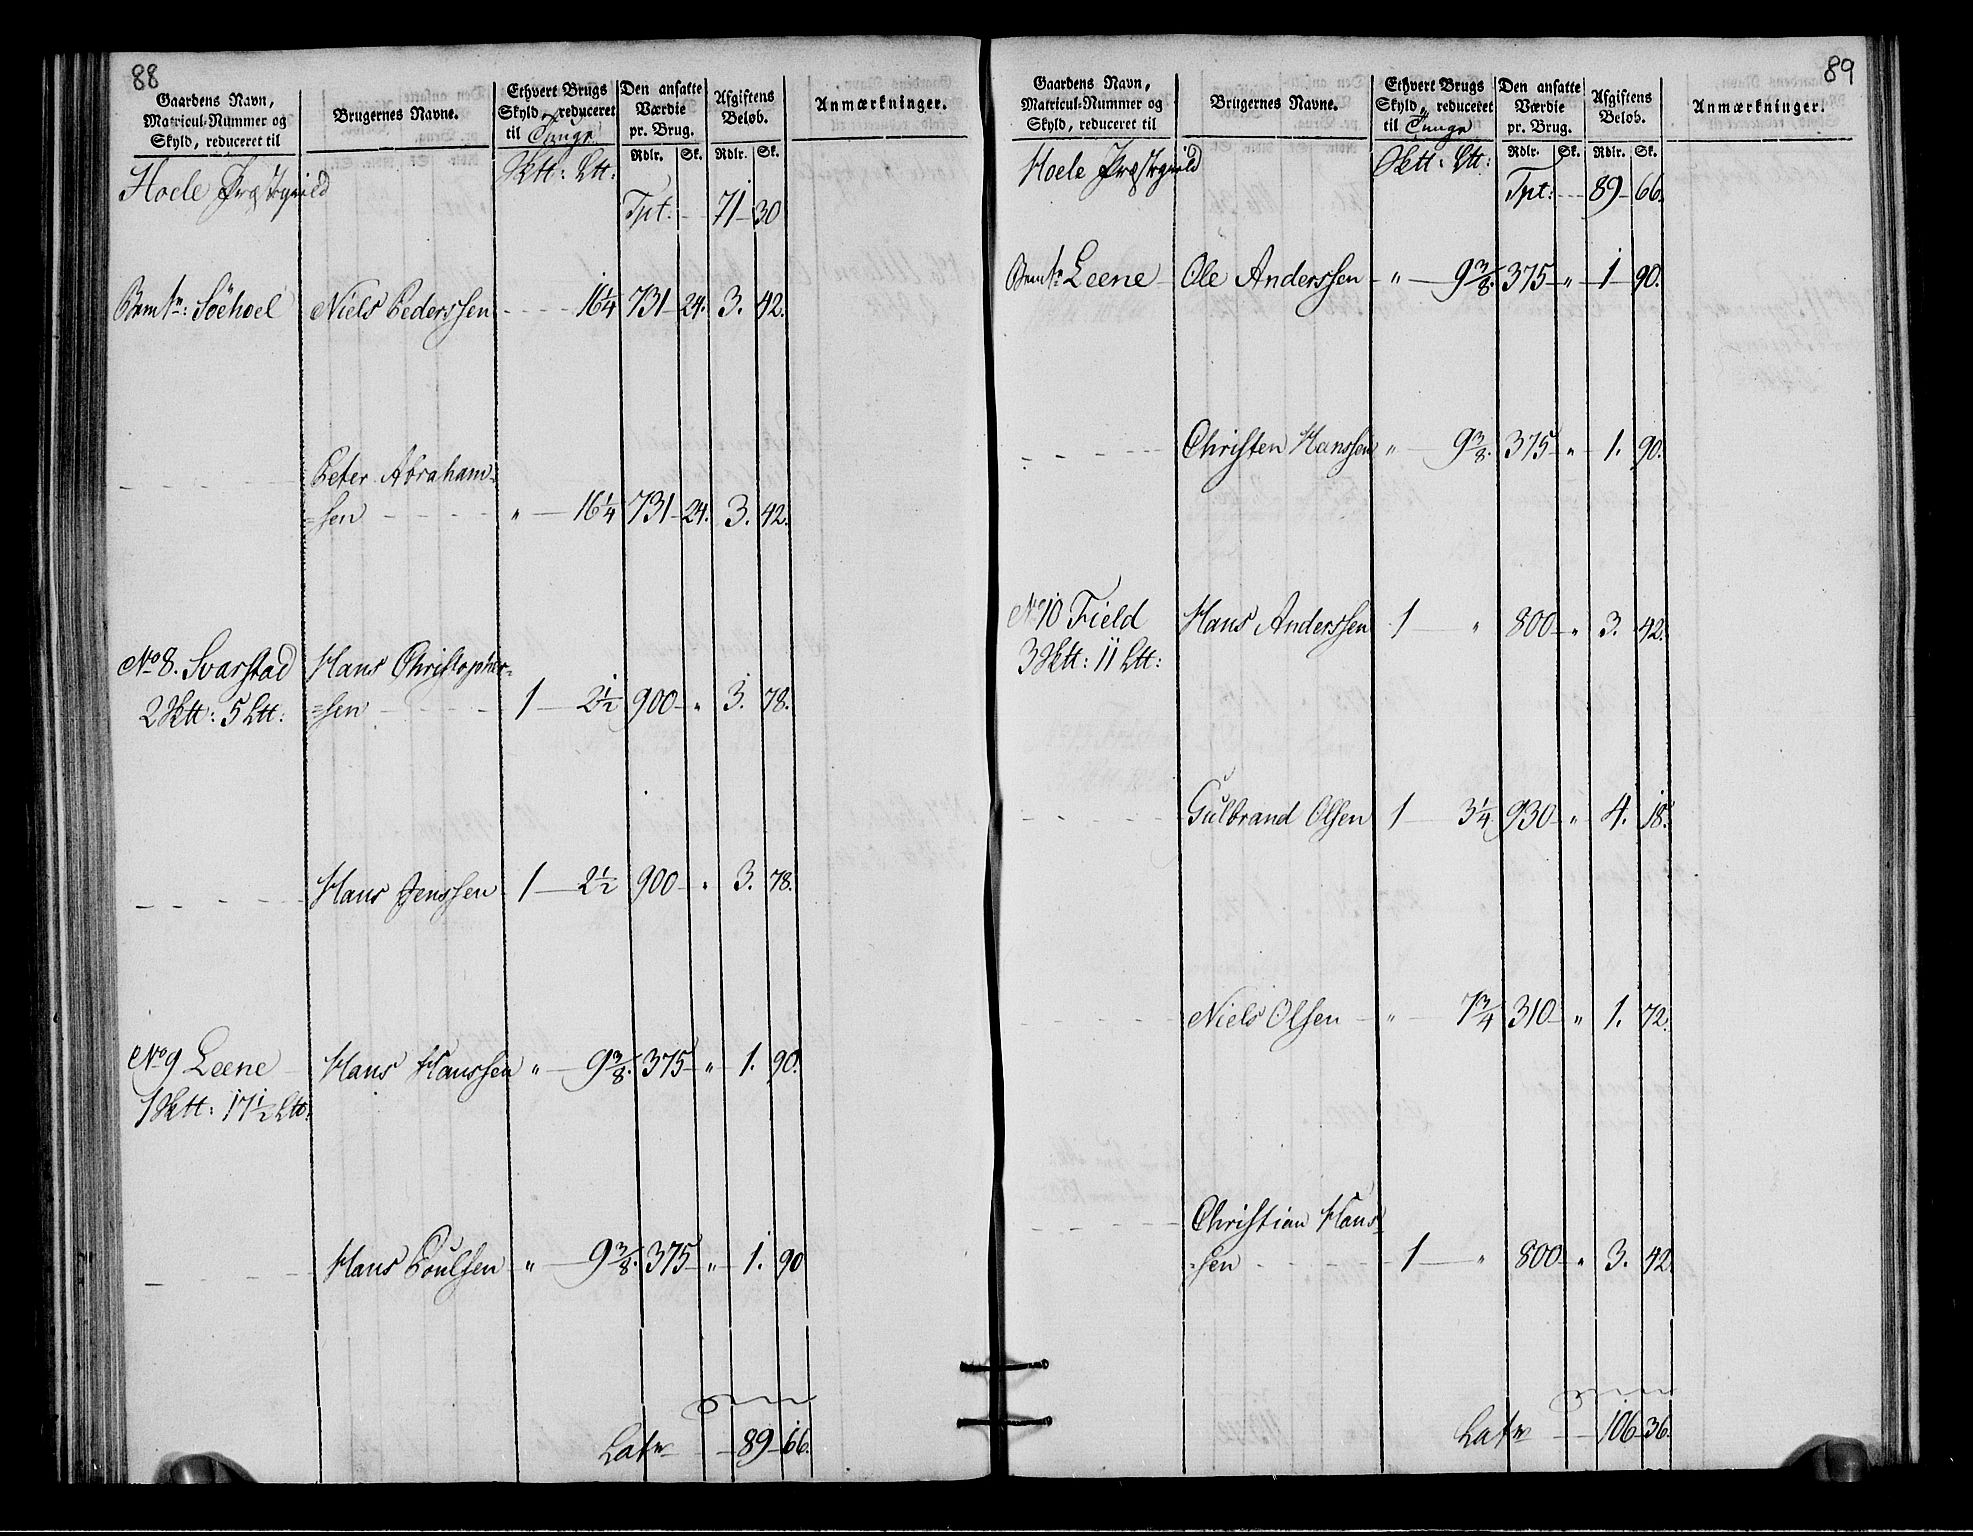 88
Gaardens Navn, Matricul-Nummer og Skyld, reduceret til
Brugernes Navne.
Ethvert Brugs Skyld, reduceret til Tunge
Den ansatte Værdie pr. Brug.
Afgiftens Beløb.
Anmærkninger.
Rdlr. Sk. Rdlr. Sk.
Hoele Præstegield Sktt: Ltt:
Tpt: 71 30
Bemte: Söehoel Niels Pederssen 16 1/4 731 24. 3. 42.
Peter Abraham-
=sen " 16 1/4 731 24. 3. 42.
No 8. Svarstad Hans Christopher-
2 Sktt: 5 Ltt: =sen 1 2 1/2 900 " 3. 78.
Hans Jenssen 1 2 1/2 900 " 3. 78.
No 9 Leene Hans Hanssen " 9 3/8 375 " 1. 90.
1 Sktt: 17 1/2 Ltt:
Hans Poulsen " 9 3/8 375 " 1. 90
Latr 89 66.
89
Gaardens Navn, Matricul-Nummer og Skyld, reduceret til
Brugernes Navne.
Ethvert Brugs Skyld, reduceret til Tunge
Den ansatte Værdie pr. Brug.
Afgiftens Beløb.
Anmærkninger.
Rdlr. Sk. Rdlr. Sk.
Hoele Præstegield Sktt: Ltt:
Tpt: 89 66.
Bemte Leene Ole Anderssen " 9 3/8 375 " 1 90.
Christen Hanssen " 9 3/8 375 " 1. 90.
No 10 Field Hans Anderssen 1 " 800 " 3. 42.
3 Sktt: 11 Ltt:
Gulbrand Olsen 1 3 1/4 930 " 4. 18.
Niels Olsen " 7 3/4 310 " 1. 72.
Christian Hans-
=sen 1 " 800 " 3. 42.
Latr 106 36.